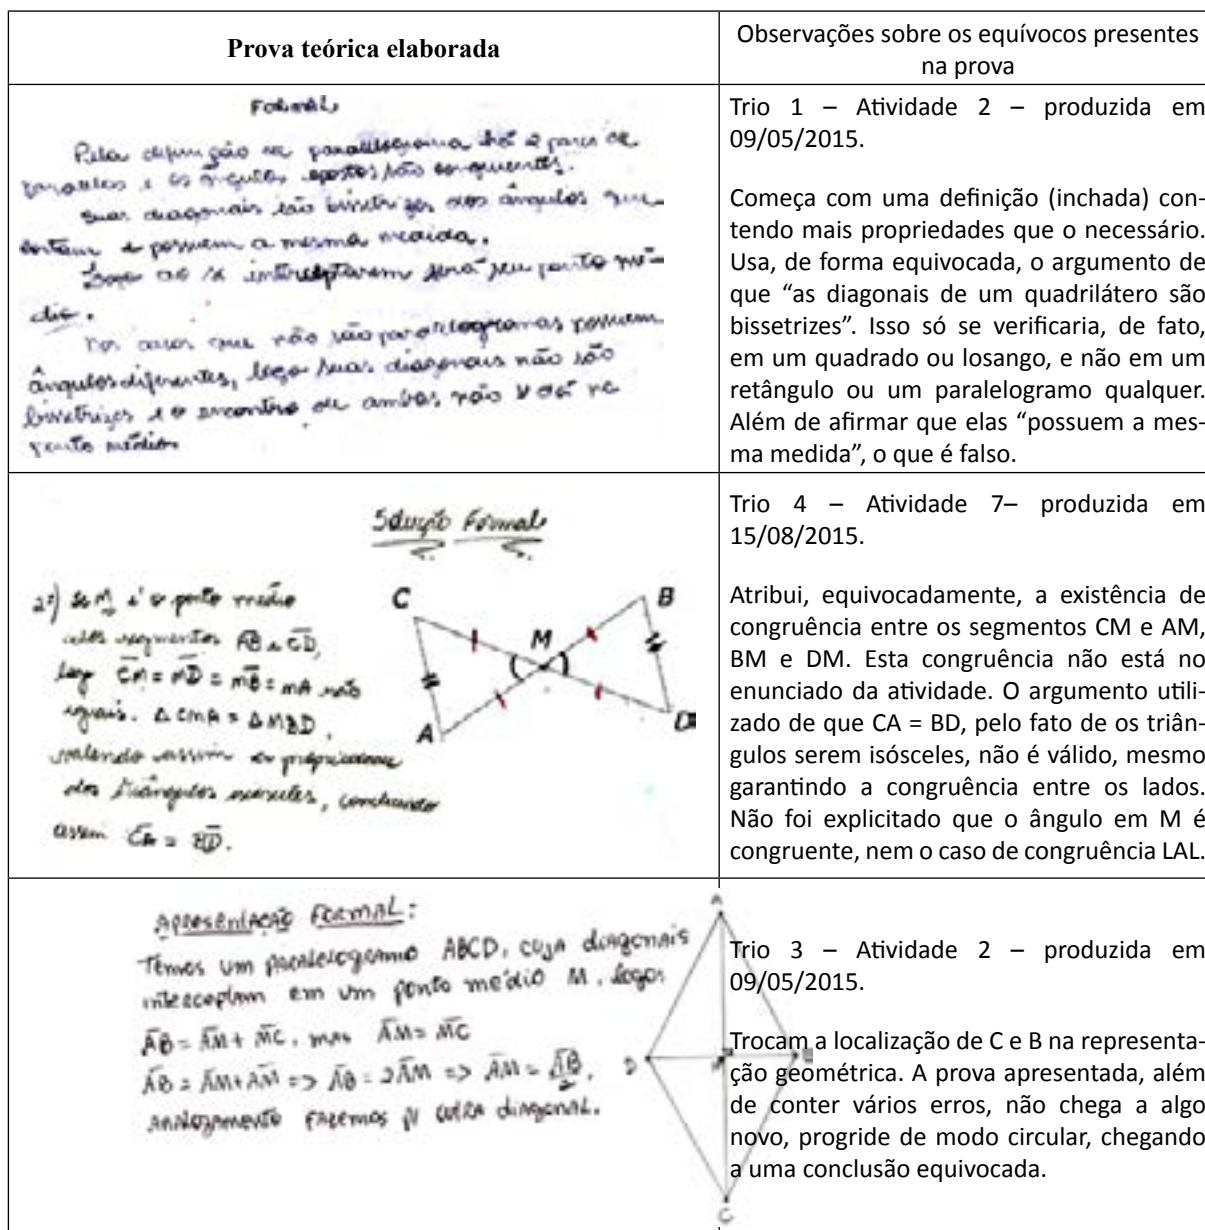 Prova teórica elaborada
Observações sobre os equívocos presentes
na prova
FORMAL
Pela definição de paralelogramo há 2 pares de
paralelos e os ângulos opostos são congruentes.
Suas diagonais são bissetrizes dos ângulos que
cortam e possuem a mesma medida.
Logo ao se interceptarem será seu ponto mé-
dio.
Nos casos que não são paralelogramos possuem
ângulos diferentes, logo suas diagonais não são
bissetrizes e o encontro de ambas não se dá no
ponto médio.
Trio 1 – Atividade 2 – produzida em
09/05/2015.
Começa com uma definição (inchada) con-
tendo mais propriedades que o necessário.
Usa, de forma equivocada, o argumento de
que “as diagonais de um quadrilátero são
bissetrizes”. Isso só se verificaria, de fato,
em um quadrado ou losango, e não em um
retângulo ou um paralelogramo qualquer.
Além de afirmar que elas “possuem a mes-
ma medida”, o que é falso.
Solução Formal
2ª) Se M é o ponto médio
dos segmentos AB e CD,
logo CM = MD = MB = MA são
iguais. Δ CMA = Δ MBD,
valendo assim a propriedade
dos triângulos isósceles, concluindo
assim CA = BD.
C
B
M
A
D
Trio 4 – Atividade 7– produzida em
15/08/2015.
Atribui, equivocadamente, a existência de
congruência entre os segmentos CM e AM,
BM e DM. Esta congruência não está no
enunciado da atividade. O argumento utili-
zado de que CA = BD, pelo fato de os triân-
gulos serem isósceles, não é válido, mesmo
garantindo a congruência entre os lados.
Não foi explicitado que o ângulo em M é
congruente, nem o caso de congruência LAL.
APRESENTAÇÃO FORMAL:
Temos um paralelogramo ABCD, cuja diagonais
interceptam em um ponto médio M. Logo:
AB = AM + MC, mas AM = MC
AB = AM + AM => AB = 2AM => AM = AB/2.
Analogamente fazemos p/ outra diagonal.
A
D
C
Trio 3 – Atividade 2 – produzida em
09/05/2015.
Trocam a localização de C e B na representa-
ção geométrica. A prova apresentada, além
de conter vários erros, não chega a algo
novo, progride de modo circular, chegando
a uma conclusão equivocada.